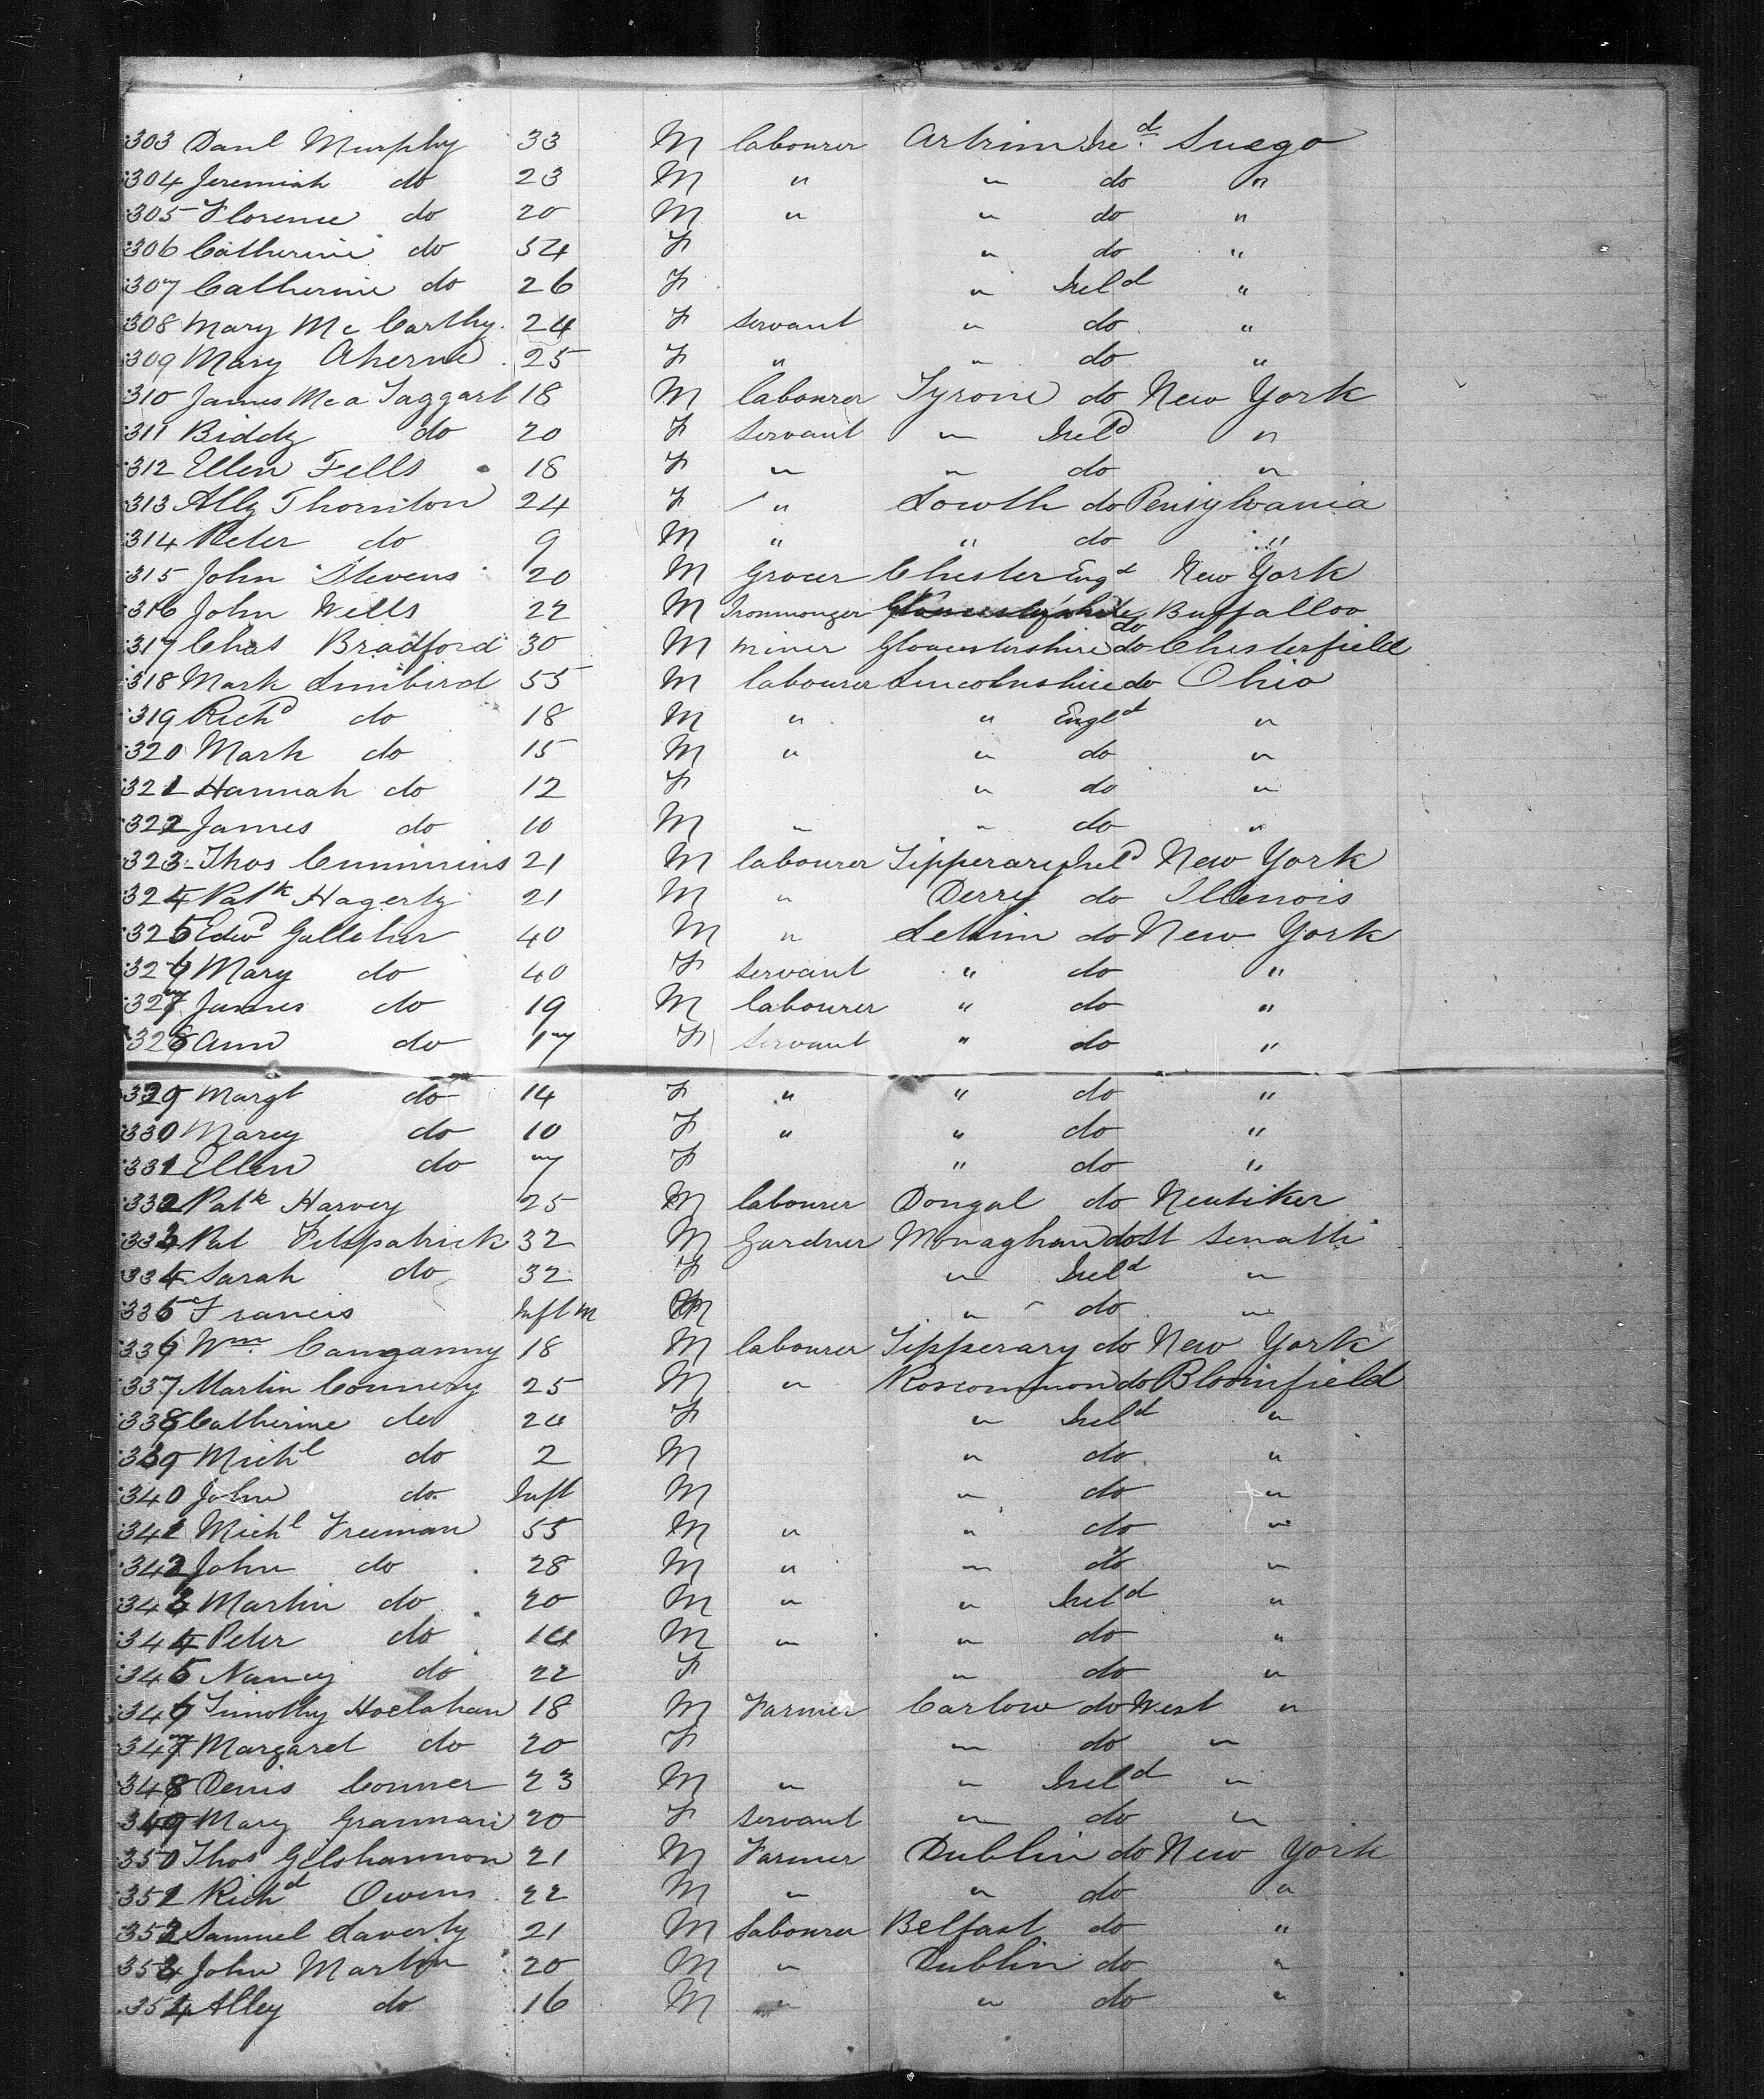 303 Danl Murphy 33 M labourer Artrim Ired. Suego
304 Jeremiah do 23 M " " do "
305 Florence do 20 M " " do "
306 Catherine do 54 F " do "
307 Catherine do 26 F " Ireld "
308 Mary Mc Carthy. 24 F Servant " do "
309 Mary Aherne 25 F " " do "
310 James Mc a Taggart 18 M labourer Tyrone do New York
311 Biddy do 20 F Servant " Ireld "
312 Ellen Fells 18 F " " do "
313 Ally Thornton 24 F " Lowth do Pensylvania
314 Peter do 9 M " " do "
315 John Stevens 20 M Grocer Chester Engd New York
316 John Wells 22 M Ironmonger do Buffalloo
317 Chas Bradford 30 M Miner Gloucestershire do Chesterfield
318 Mark Limbird 55 M labourer Lincolnshire do Ohio
319 Richd do 18 M " " Engld "
320 Mark do 15 M " " do "
321 Hannah do 12 F " do "
322 James do 10 M " " do "
323 Thos Cummins 21 M labourer Tipperary Ireld New York
324 Patk Hagerty 21 M " Derry do Illenois
325 Edwd Galleher 40 M " Letrim do New York
326 Mary do 40 F Servant " do "
327 James do 19 M labourer " do "
328 Ann do 17 F Servant " do "
329 Margt do 14 F " " do "
330 Marey do 10 F " " do "
331 Ellen do 7 F " do "
332 Patk Harvey 25 M labourer Dongal do Neutiker
333 Pat Fitzpatrick 32 M Gardner Monaghan do St Senatti
334 Sarah do 32 F " Ireld "
335 Francis Inft M M " do "
336 Wm. Canganny 18 M labourer Tipperary do New York
337 Martin Connery 25 M " Roscommon do Bloomfield
338 Catherine do 24 F " Ireld "
339 Michl do 2 M " do "
340 John do Inft M " do "
341 Michl Freeman 55 M " " do "
342 John do 28 M " " do "
343 Martin do 20 M " " Ireld "
344 Peter do 14 M " " do "
345 Nancy do 22 F " do "
346 Timothy Hoelahan 18 M Farmer Carlow do West "
347 Margaret do 20 F " do "
348 Denis Conner 23 M " " Ireld "
349 Mary Grannan 20 F Servant " do "
350 Thos Gilshannon 21 M Farmer Dublin do New York
351 Richd Owens 22 M " " do "
352 Samuel Laverty 21 M Labourer Belfast do "
353 John Martin 20 M " Dublin do "
354 Alley do 16 M " " do "